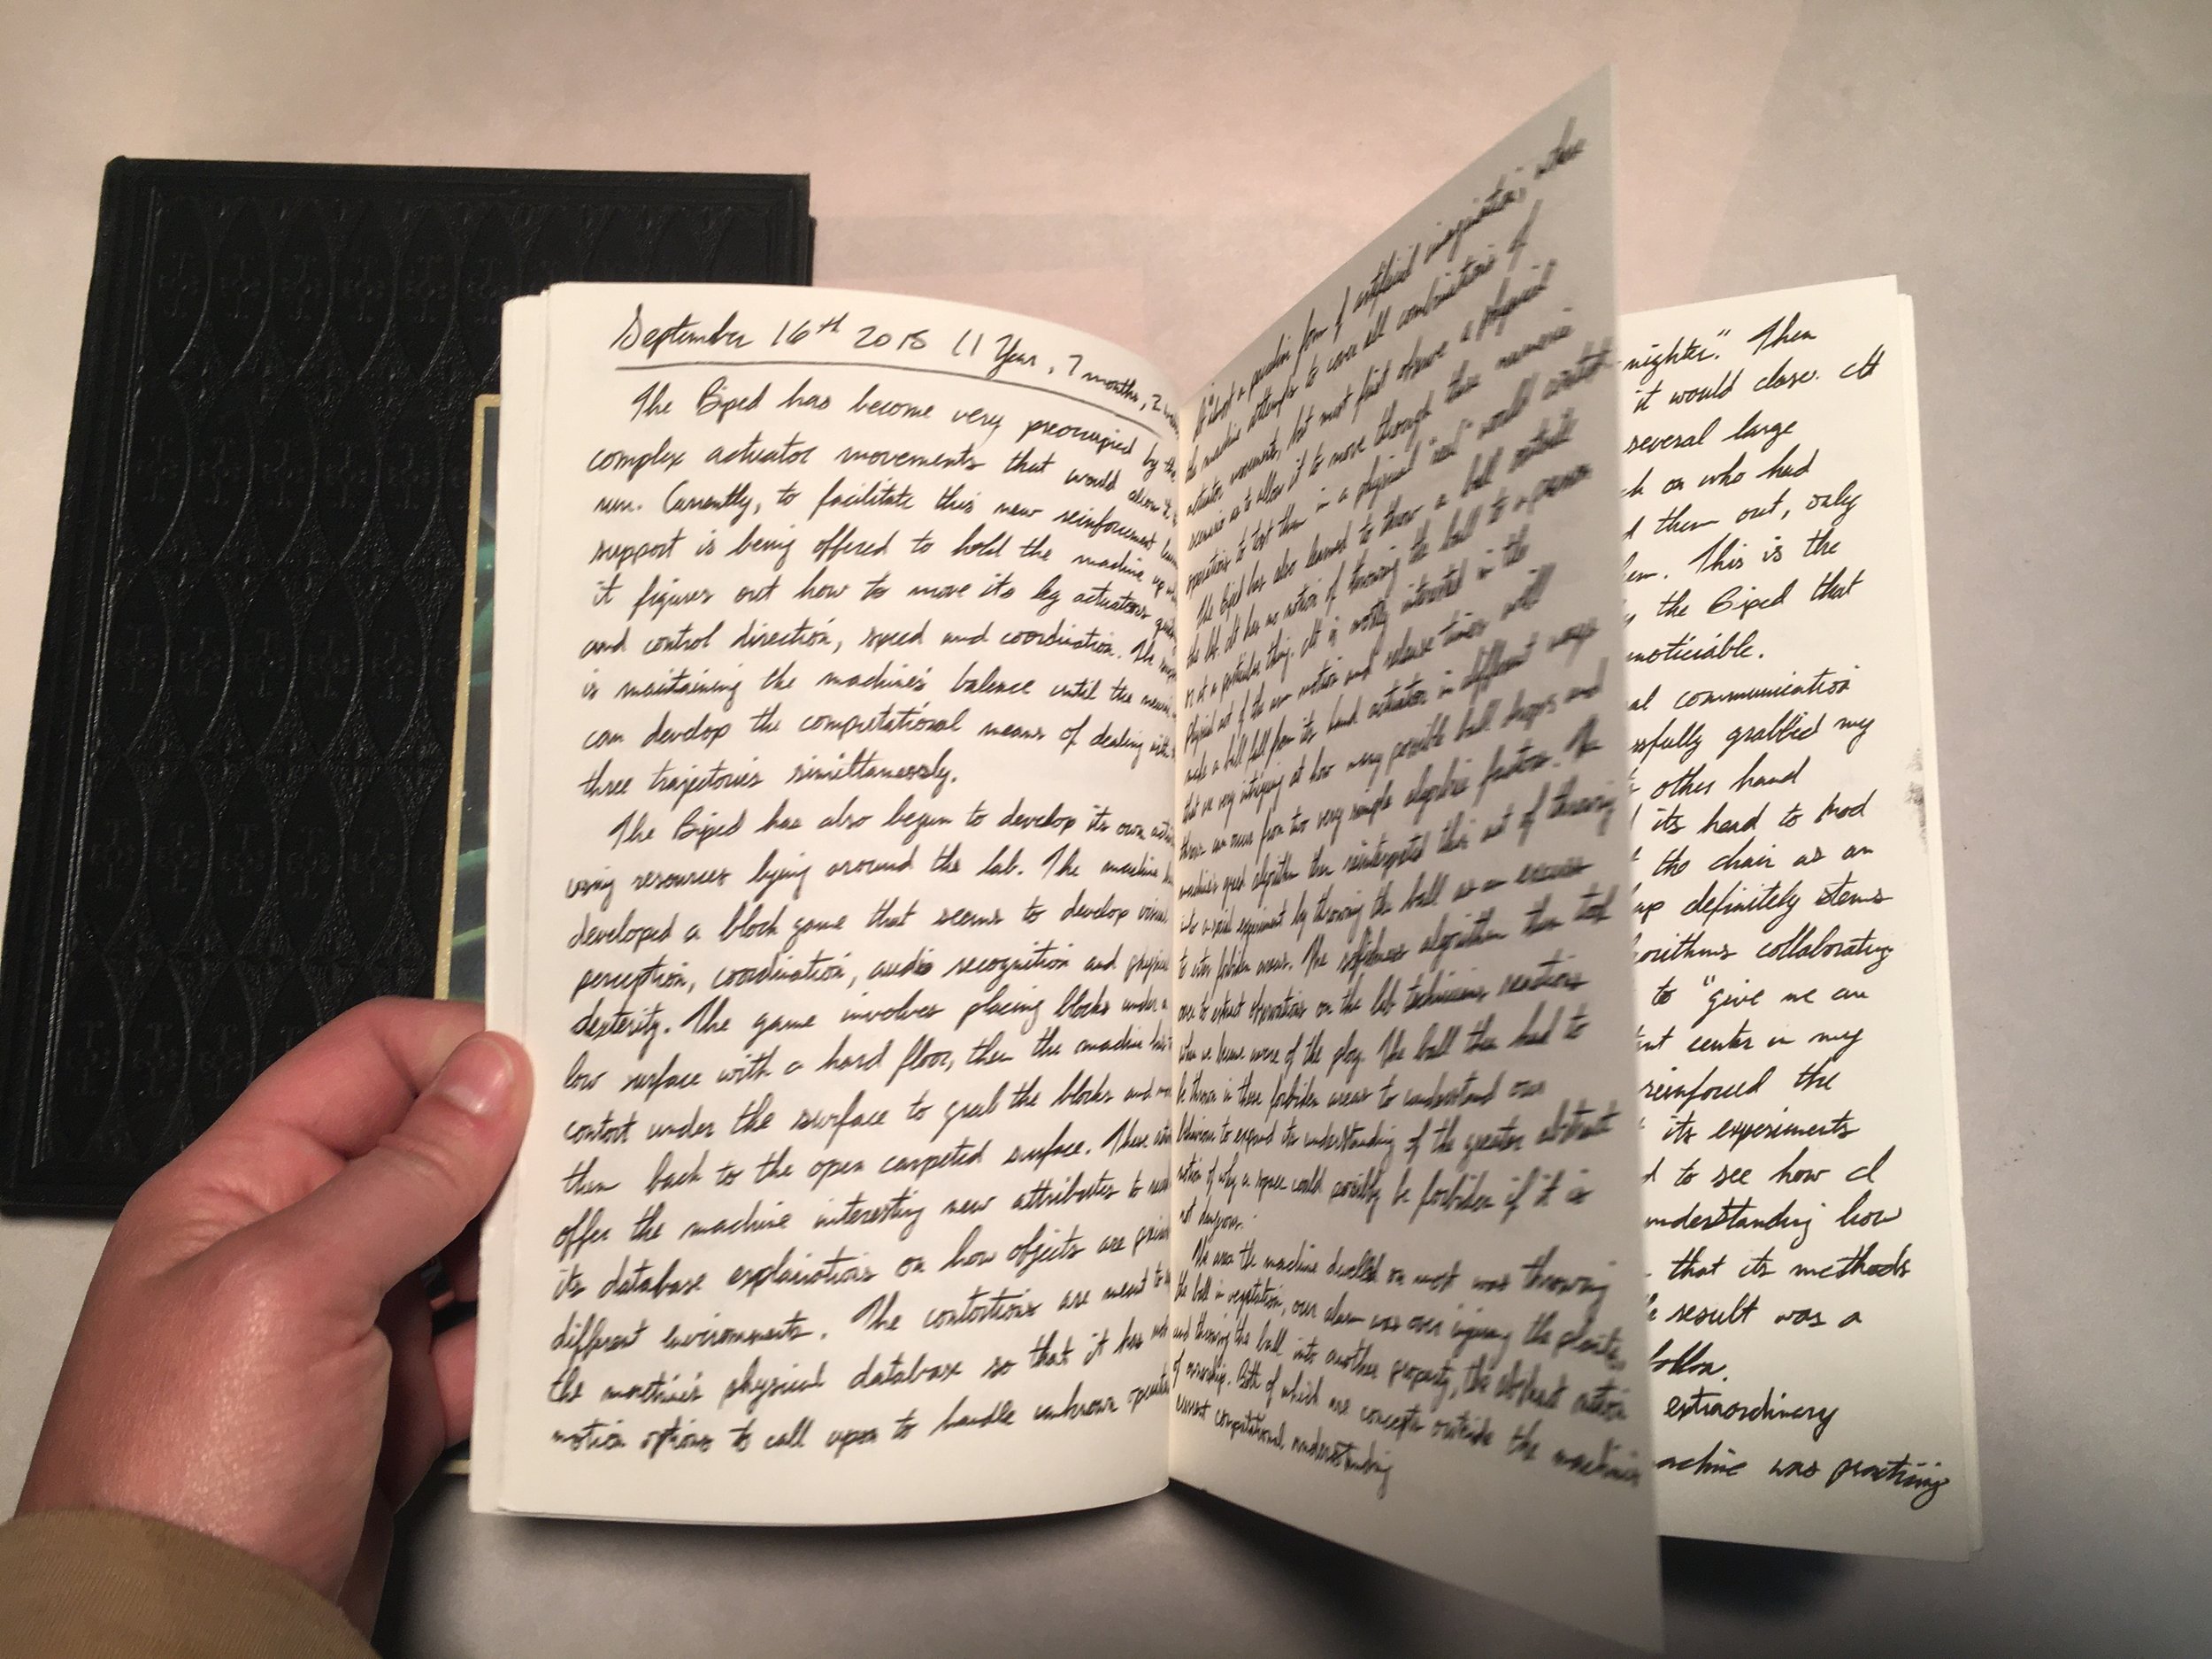 September 16th 2018 (1 Year, 7 months, 2
The Biped has become very preoccupied by the
complex actuator movements that would allow it
run. Currently, to facilitate this new reinforcement
support is being offered to hold the machine up
it figures out how to move its leg actuators
and control direction, speed and coordination. The
is maintaining the machine's balence until the
can develop the computational means of dealing with
three trajectories simultaneously.
The Biped has also begun to develop its own
using resources lying around the lab. The machine
developed a block game that seems to develop visual
perception, coordination, audio recognition and physical
dexterity. The game involves placing blocks under a
low surface with a hard floor, then the machine has to
contort under the surface to grab the blocks and
then back to the open carpeted surface. These
offer the machine interesting new attributes to
its database explainations on how objects are
different enviroments. The contortions are meant to
the machine's physical database so that it has
motion options to call upon to handle unknown
is about a peculiar form of artificial imagination, where
the machine attempts to cover all combinations of
actuator movements, but must first observe a physical
scenario as to allow it to move through these
operations to test them in a physical "real" world
The Biped has also learned to throw a ball outside
the lab. It has no notion of throwing the ball to a person
or at a particular thing. It is mostly interested in the
physical act of the arm motion and release times will
make a ball fall from its hand actuator in different ways
that we very intriguing at how many possible ball drops and
throws can occur from two very simple algebraic factors. The
machine's greed algorithm then reinterpreted this act of throwing
into a social experiment by throwing the ball as an excuse
to enter forbiden areas. The selfishness algorithm then took
over to extract operations on the lab technicians reactions
when we became aware of the ploy. The ball then had to
be thrown in these forbiden areas to understand our
behaviour to expand its understanding of the greater abstract
notion of why a space could possibly be forbiden if it is
not dangerous.
The area the machine dwelled on most was throwing
the ball in vegetation, our alarm was over injuring the plants,
and throwing the ball into another property, the abstract notion
of ownership. Both of which are concepts outside the machine's
current computational understanding
nighter". Then
it would close. It
several large
on who had
them out, only
This is the
the Biped that
noticiable.
communication
grabbed my
other hand
its head to nod
the chair as an
definitely stems
collaborating
to "give me an
center in my
reinforced the
its experiments
to see how I
understanding how
that its methods
result was a
follow.
extraordinary
machine was practising